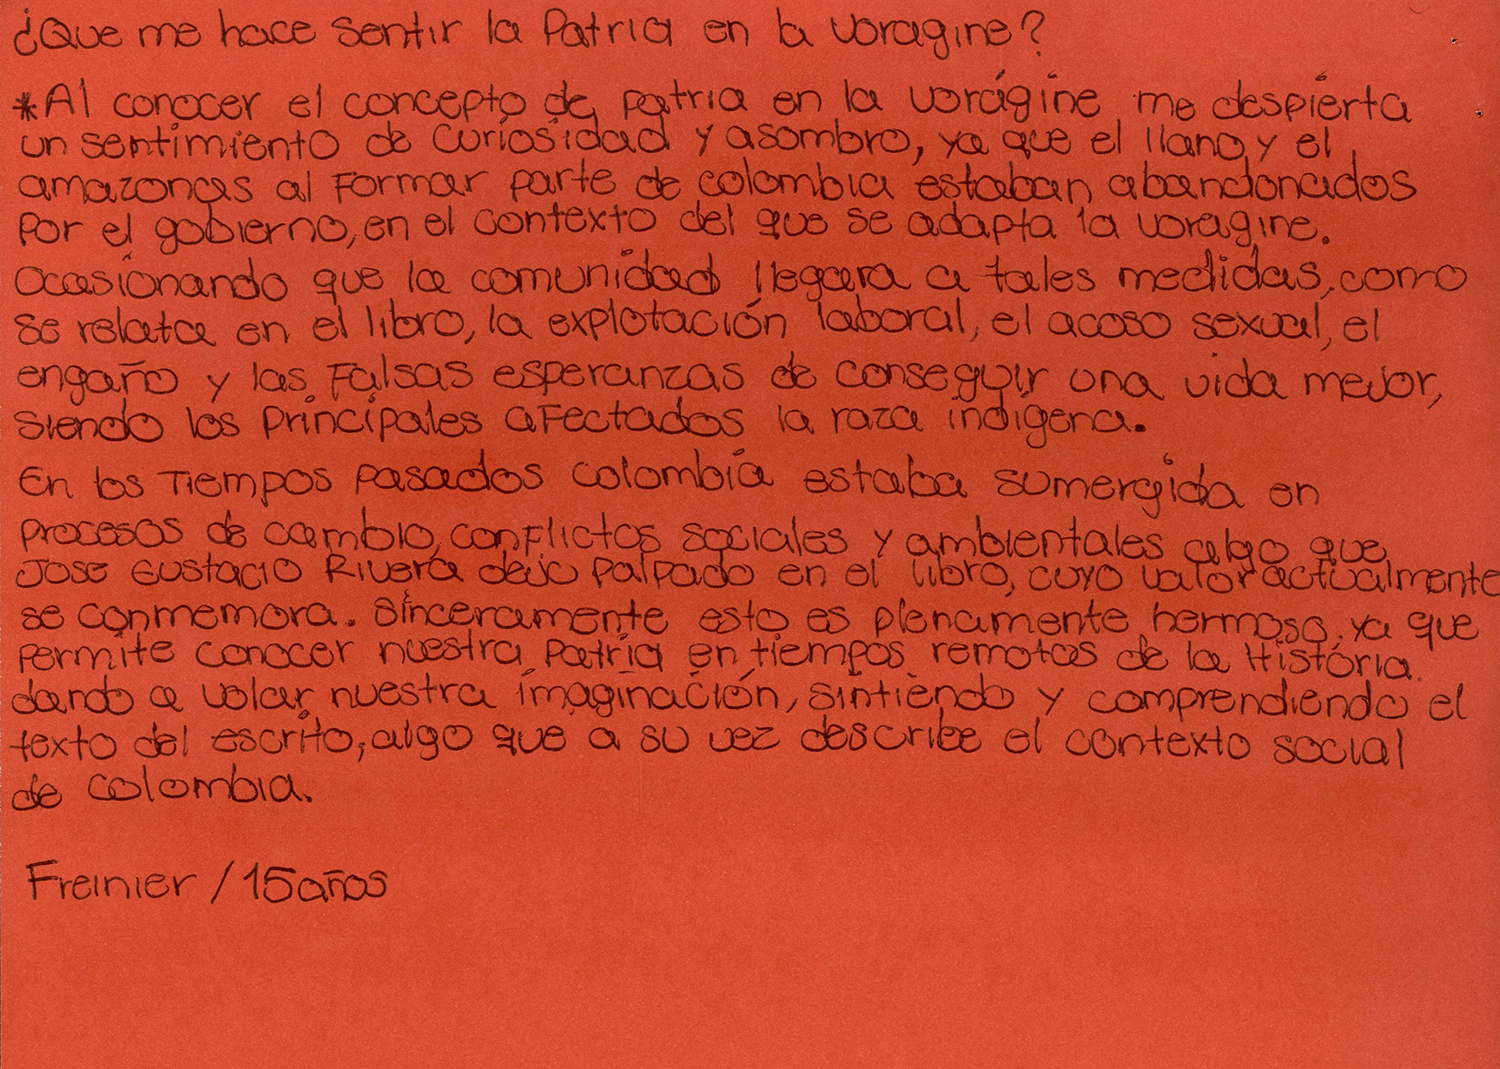 ¿Que me hace sentir la Patria en la voragine?
*Al conocer el concepto de patria en la vorágine me despierta
un sentimiento de curiosidad y asombro, ya que el llano y el
amazonas al Formar parte de colombia estaban abandonados
Por el gobierno, en el contexto del que se adapta la voragine.
Ocasionando que la comunidad llegara a tales medidas, como
se relata en el libro, la explotación laboral, el acoso sexual, el
engaño y las Falsas esperanzas de conseguir una vida mejor,
siendo los principales afectados la raza indígena.
En los Tiempos pasados colombia estaba sumergida en
procesos de cambio, conflictos sociales y ambientales algo que
Jose Eustacio Rivera dejo palpado en el libro, cuyo valor actualmente
se conmemora. Sinceramente esto es plenamente hermoso, ya que
permite conocer nuestra patria en tiempos remotos de la Historia.
dando a volar nuestra imaginación, sintiendo y comprendiendo el
texto del escrito, algo que a su vez describe el contexto social
de colombia.
Freinier / 15 años